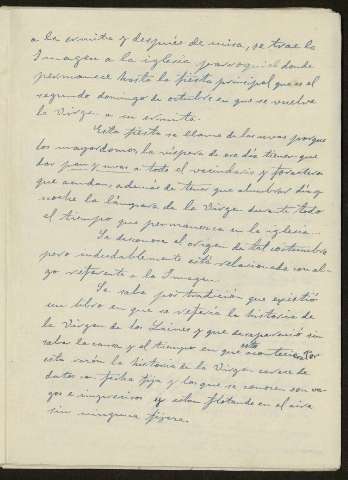 a la ermita y después de misa, se trae la
Imagen a la iglesia parroquial donde
permanece hasta la fiesta principal que es el
segundo domingo de octubre en que se vuelve
la Virgen a su ermita.
Esta fiesta se llama de las uvas porque
los mayordomos la víspera de ese día tienen que
dar pan y uvas a todo el vecindario y forasteros
que acudan, además de tener que alumbrar día y
noche la lámpara de la Virgen durante todo
el tiempo que permanezca en la iglesia.
Se desconoce el origen de tal costumbre
pero indudablemente está relacionada con al-
go referente a la Imagen.
Se sabe por tradición que existió
un libro en que se refería la historia de
la Virgen de los y que desapareció sin
saber la causa y el tiempo en que esto aconteciera. Por
esta razón la historia de la Virgen carece de
datos a fecha fija y los que se conocen son va-
gos e imprecisos y están flotando en el aire
sin ninguna fijeza.